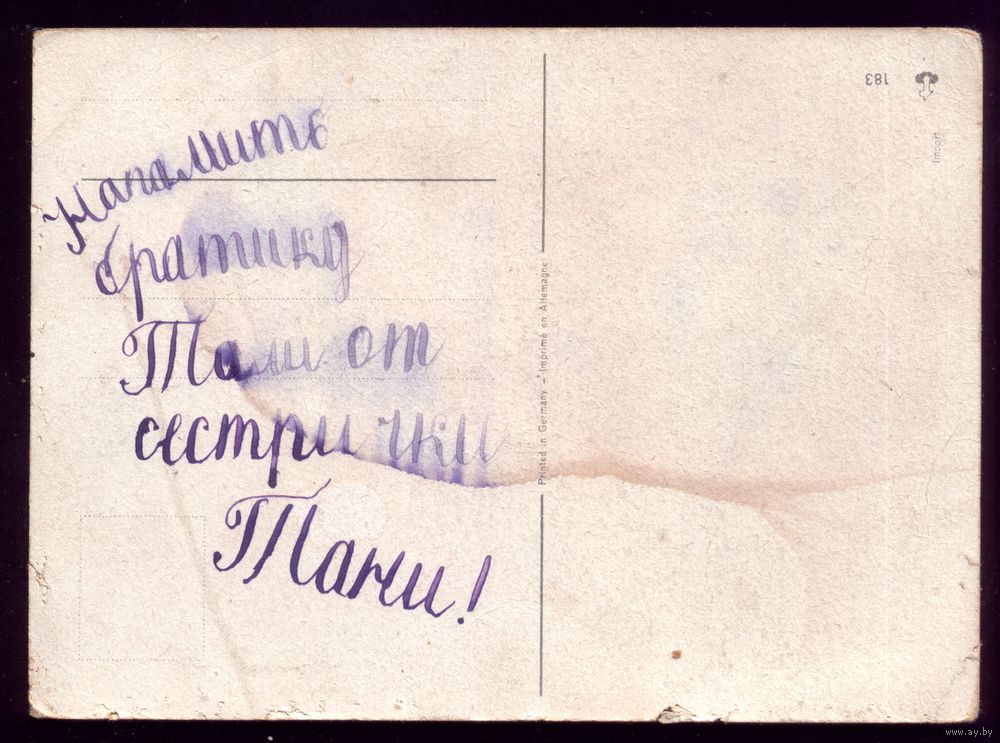 Напамить
братику
Тали от
сестрички
Тани!
Printed in Germany – Imprimé en Allemagne
183
Import
www.ay.by